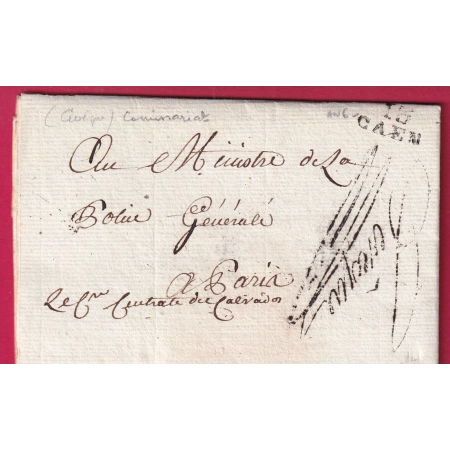 Commissariat
13
CAEN
Au Ministre de la
Police Générale
A Paris
Le Cre Centrale du Calvados